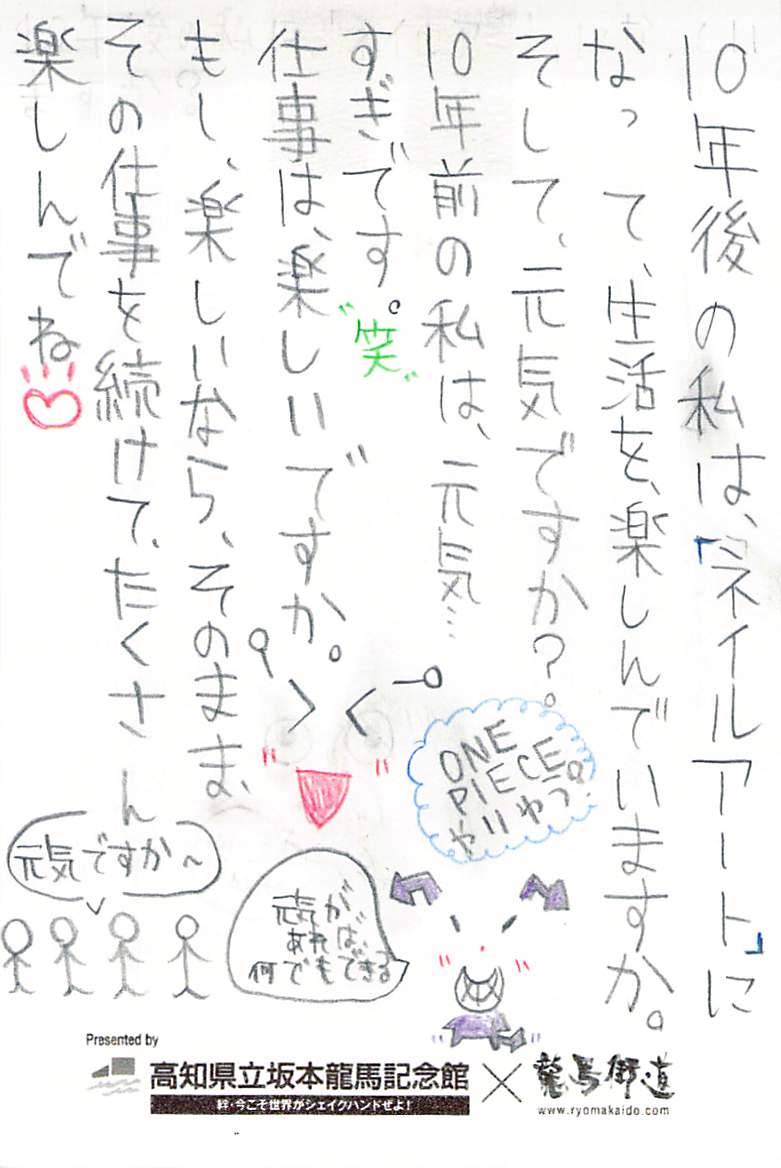 10年後の私は、「ネイルアート」に
なって、生活を、楽しんでいますか。
そして、元気ですか?。
10年前の私は、元気…
すぎです。
"笑"
仕事は、楽しいですか。
もし、楽しいなら、そのまま、
その仕事を続けて、たくさん
楽しんでね
ONE
PIECE
元気ですか~
元気が
あれば、
何でもできる
Presented by
高知県立坂本龍馬記念館
絆・今こそ世界がシェイクハンドせよ!
×
龍馬街道
www.ryomakaido.com